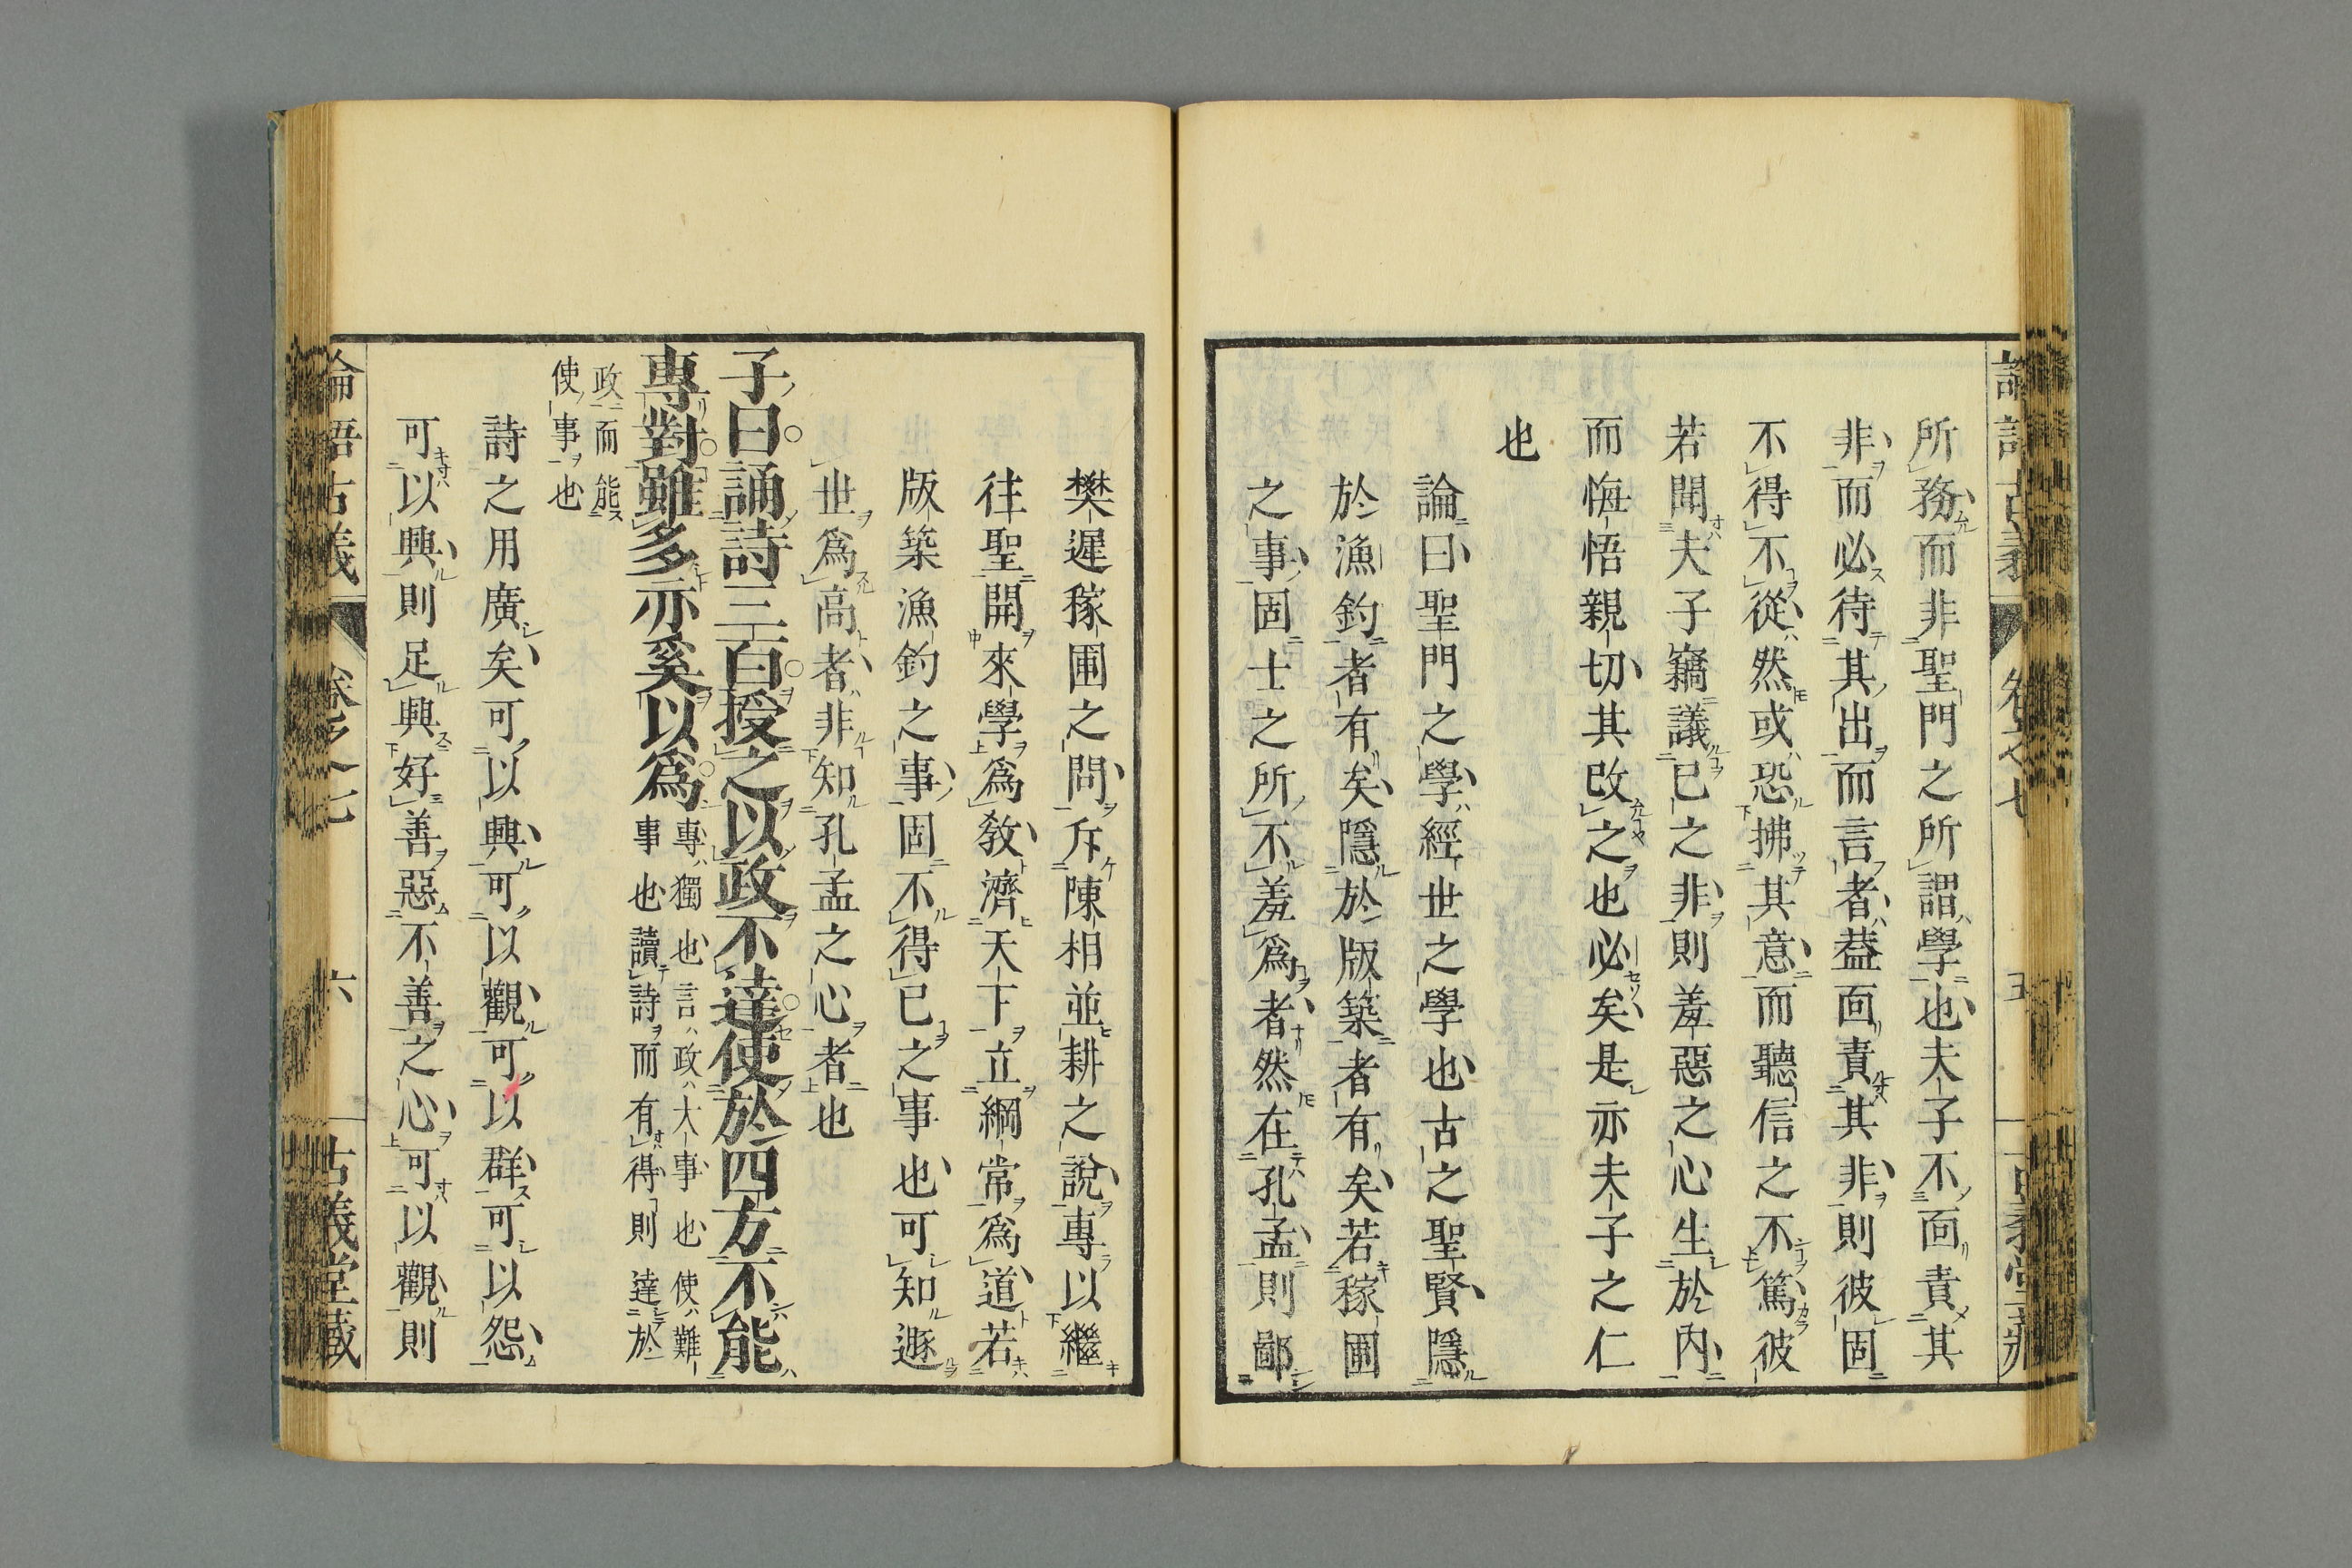 所務而非聖門之所謂學也夫子不面責其
非而必待其出而言者蓋面責其非則彼固
不得不從然或恐拂其意而聽信之不篤彼
若聞夫子竊議已之非則羞惡之心生於內
而悔悟親切其改之也必矣是亦夫子之仁
也
論曰聖門之學經世之學也古之聖賢隱
於漁釣者有矣隱於版築者有矣若稼圃
之事固士之所不羞爲者然在孔孟則鄙
樊遲稼圃之問斥陳相並耕之說專以繼
往聖開來學爲敎濟天下立綱常爲道若
版築漁釣之事固不得已之事也可知遯
世爲高者非知孔孟之心者也
子曰誦詩三百授之以政不達使於四方不能
專對雖多亦奚以爲
專獨也言政大事也使難
事也讀詩而有得則達於
政而能
使事也
詩之用廣矣可以興可以觀可以群可以怨
可以興則足興好善惡不善之心可以觀則
論語古義 卷之七 六 古義堂藏